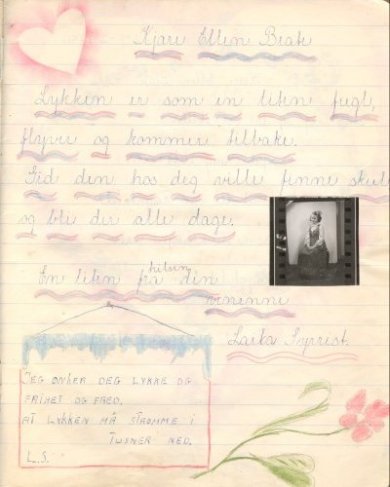 Kjære Ellen Beate
Lykken er som en liten fugl,
flyver og kommer tilbake.
Gid den hos deg ville finne skul
og bli der alle dage.
En liten hilsen fra din
veninne
Laika Syprist.
JEG ØNSKER DEG LYKKE OG
FRIHET OG FRED.
AT LYKKEN MÅ STRØMME I
TUSNER NED.
L.S.